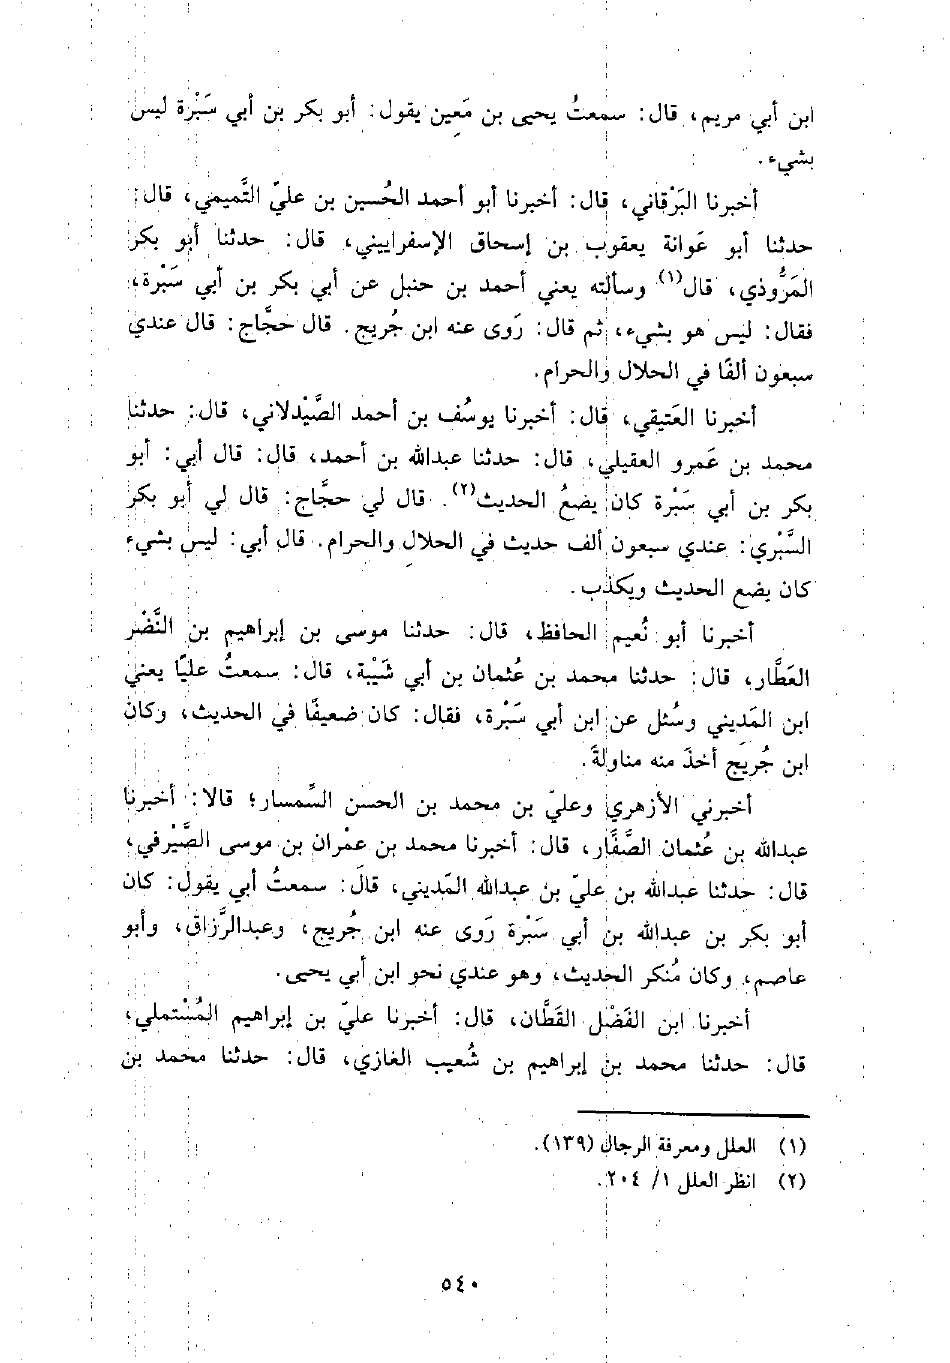 ابن أبي مريم، قال: سمعتُ يحيى بن مَعين يقول: أبو بكر بن أبي سَبْرة ليس
بشيء.
أخبرنا البَرْقاني، قال: أخبرنا أبو أحمد الحُسين بن عليّ التَّميمي، قال:
حدثنا أبو عَوانة يعقوب بن إسحاق الإسفراييني، قال: حدثنا أبو بكر
المَرُّوذي، قال(١) وسألته يعني أحمد بن حنبل عن أبي بكر بن أبي سَبْرة،
فقال: ليس هو بشيء، ثم قال: رَوى عنه ابن جُريج. قال حجَّاج: قال عندي
سبعون ألفًا في الحلال والحرام.
أخبرنا العَتيقي، قال: أخبرنا يوسُف بن أحمد الصَّيْدلاني، قال: حدثنا
محمد بن عَمرو العقيلي، قال: حدثنا عبدالله بن أحمد، قال: قال أبي: أبو
بكر بن أبي سَبْرة كان يضعُ الحديث(٢). قال لي حجَّاج: قال لي أبو بكر
السَّبْري: عندي سبعون ألف حديث في الحلال والحرام. قال أبي: ليس بشيء
كان يضع الحديث ويكذب.
أخبرنا أبو نُعيم الحافظ، قال: حدثنا موسى بن إبراهيم بن النَّضْر
العَطَّار، قال: حدثنا محمد بن عُثمان بن أبي شَيْبة، قال: سمعتُ عليًا يعني
ابن المَديني وسُئل عن ابن أبي سَبْرة، فقال: كان ضعيفًا في الحديث، وكان
ابن جُريَج أخذَ منه مناولةً.
أخبرني الأزهري وعليّ بن محمد بن الحسن السِّمسار؛ قالا: أخبرنا
عبدالله بن عُثمان الصَّفَّار، قال: أخبرنا محمد بن عمْران بن موسى الصَّيْرفي،
قال: حدثنا عبدالله بن عليّ بن عبدالله المَديني، قال: سمعتُ أبي يقول: كان
أبو بكر بن عبدالله بن أبي سَبْرة رَوى عنه ابن جُريج، وعبدالرَّزاق، وأبو
عاصم، وكان مُنكر الحديث، وهو عندي نحو ابن أبي يحيى.
أخبرنا ابن الفَضْل القَطَّان، قال: أخبرنا عليّ بن إبراهيم المُسْتملي،
قال: حدثنا محمد بن إبراهيم بن شُعيب الغازي، قال: حدثنا محمد بن
(١) العلل ومعرفة الرجال (١٣٩).
(٢) انظر العلل ١/ ٢٠٤.
٥٤٠